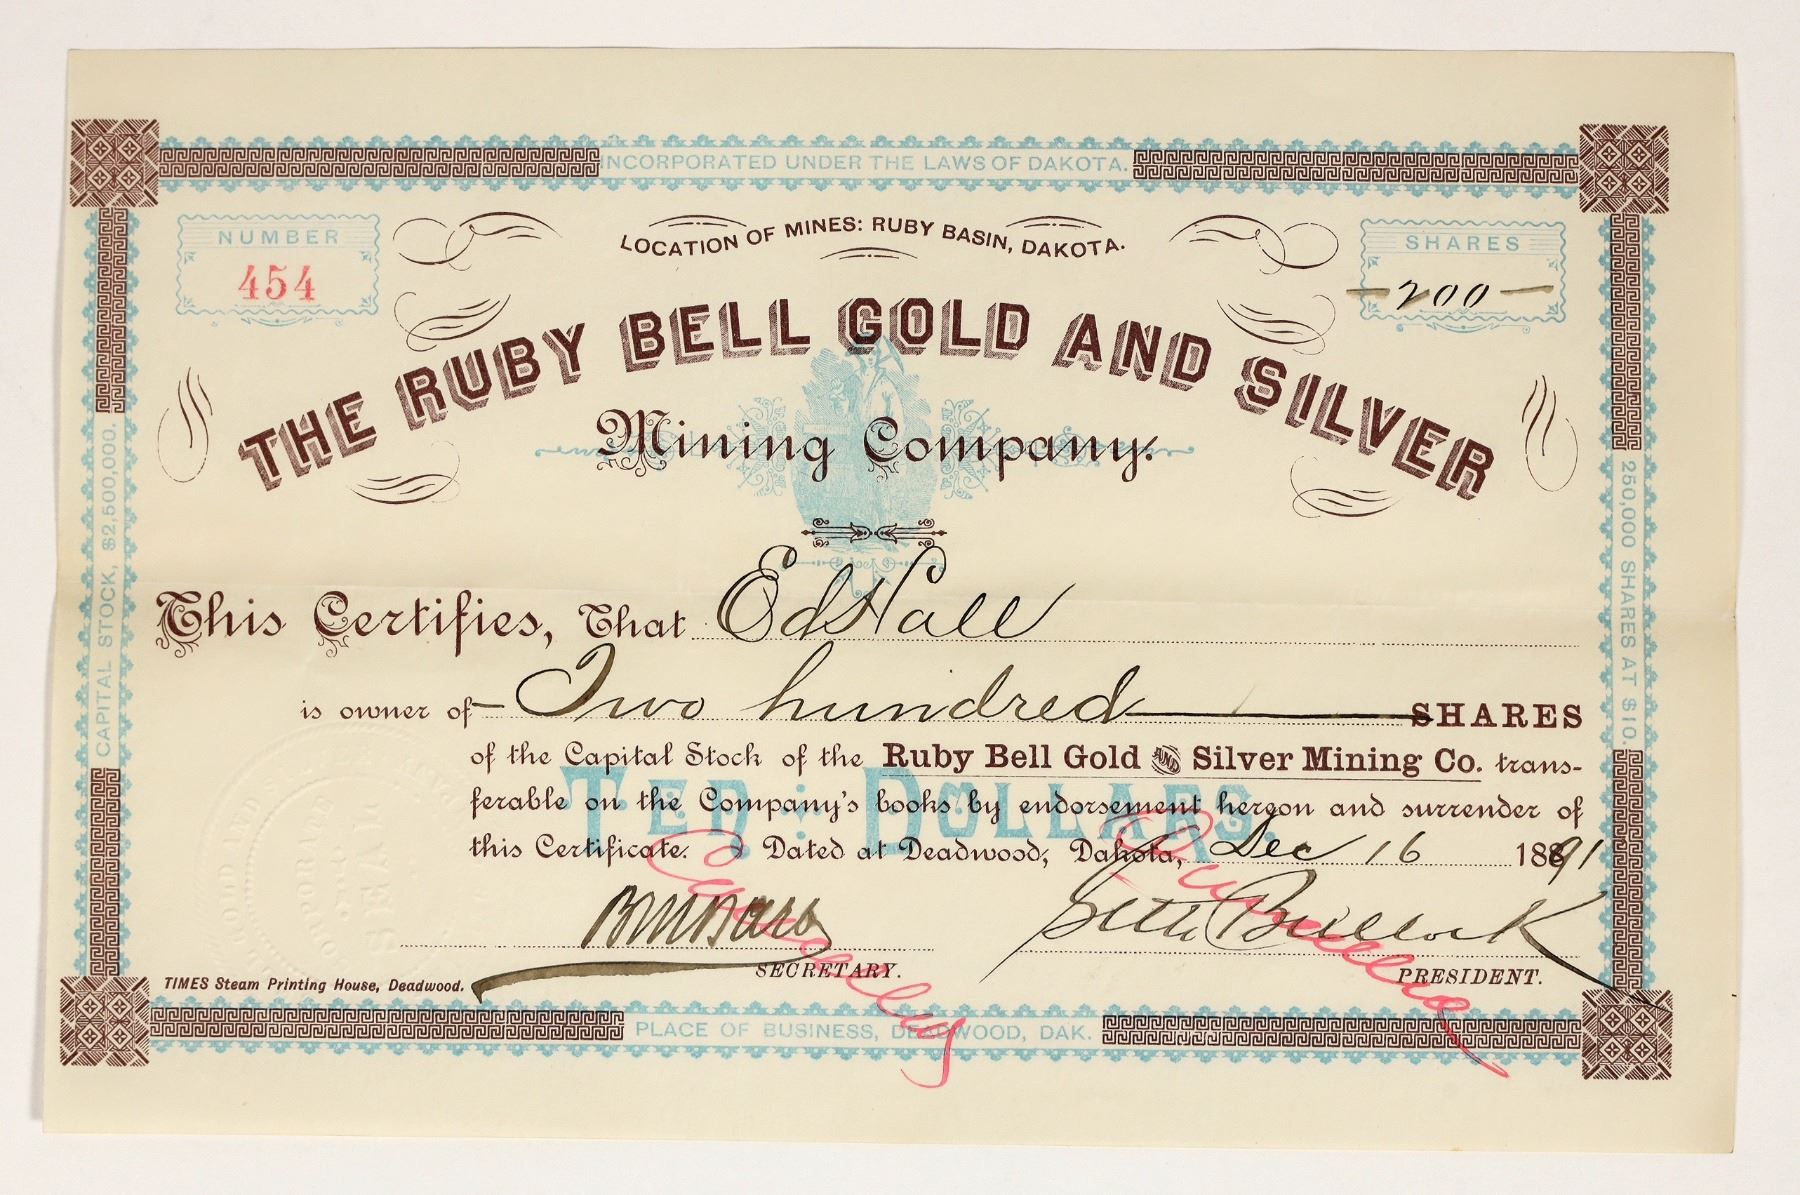 INCORPORATED UNDER THE LAWS OF DAKOTA.
NUMBER
454
LOCATION OF MINES: RUBY BASIN, DAKOTA.
SHARES
200
THE RUBY BELL GOLD AND SILVER
Mining Company.
CAPITAL STOCK, $2,500,000.
250,000 SHARES AT $10.
This Certifies, That Ed Hall
is owner of Two hundred SHARES
of the Capital Stock of the Ruby Bell Gold AND Silver Mining Co. trans-
ferable on the Company's books by endorsement hereon and surrender of
this Certificate. Dated at Deadwood, Dakota, Dec 16 1891
TEN DOLLARS.
Seth Bullock
SECRETARY.
PRESIDENT.
CORPORATE
SEAL
TIMES Steam Printing House, Deadwood.
PLACE OF BUSINESS, DEADWOOD, DAK.